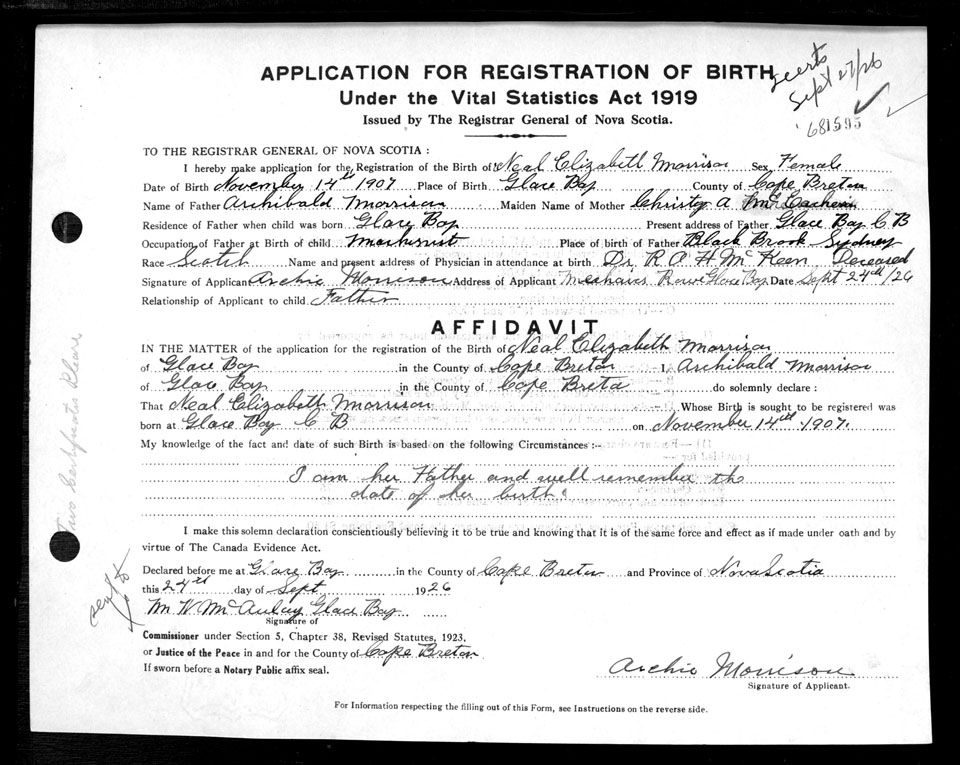 2 certs
Sept 27/26
681595
APPLICATION FOR REGISTRATION OF BIRTH
Under the Vital Statistics Act 1919
Issued by The Registrar General of Nova Scotia.
TO THE REGISTRAR GENERAL OF NOVA SCOTIA :
I hereby make application for the Registration of the Birth of Neal Elizabeth Morrison Sex Female
Date of Birth November 14th 1907 Place of Birth Glace Bay County of Cape Breton
Name of Father Archibald Morrison Maiden Name of Mother Christy A McEachern
Residence of Father when child was born Glace Bay Present address of Father Glace Bay C B
Occupation of Father at Birth of child Machinist Place of birth of Father Black Brook Sydney
Race Scotch Name and present address of Physician in attendance at birth Dr R A H McKeen Deceased
Signature of Applicant Archie Morrison Address of Applicant Mechanics Row Glace Bay Date Sept 24th/26
Relationship of Applicant to child Father
AFFIDAVIT
IN THE MATTER of the application for the registration of the Birth of Neal Elizabeth Morrison
of Glace Bay in the County of Cape Breton I, Archibald Morrison
of Glace Bay in the County of Cape Breto do solemnly declare :
That Neal Elizabeth Morrison Whose Birth is sought to be registered was
born at Glace Bay C B on November 14th 1907.
My knowledge of the fact and date of such Birth is based on the following Circumstances :-
I am her Father and well remember the
date of her birth.
I make this solemn declaration conscientiously believing it to be true and knowing that it is of the same force and effect as if made under oath and by
virtue of The Canada Evidence Act.
Declared before me at Glace Bay in the County of Cape Breton and Province of Nova Scotia
this 24th day of Sept 1926
Wm W McAulay Glace Bay
Signature of
Commissioner under Section 5, Chapter 38, Revised Statutes, 1923,
or Justice of the Peace in and for the County of Cape Breton
If sworn before a Notary Public affix seal.
Archie Morrison
Signature of Applicant.
For Information respecting the filling out of this Form, see Instructions on the reverse side.
Two Certificates Please